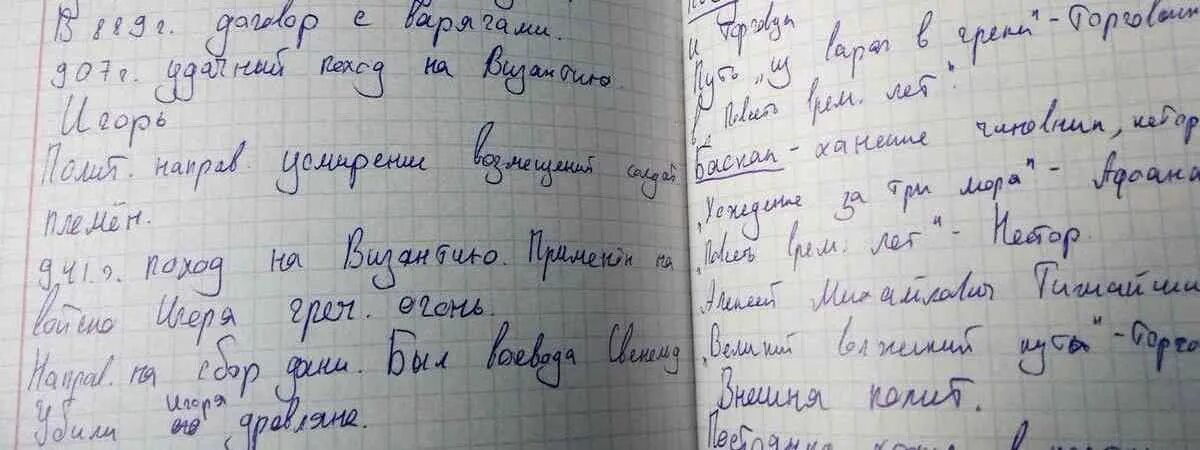 В 889 г. договор с варягами.
907 г. удачный поход на Византию.
Игорь
Полит. направ. усмирении возмещений
племён.
941 г. поход на Византию. Применён на
войско Игоря греч. огонь.
Направ. на сбор дани. Был воевода Свенельд
Убили Игоря древляне.
и Торговца
Путь "из варяг в греки" - Торговый
в Повесть врем. лет".
Баскак - ханские чиновник,
"Хождение за три моря" -
"Повесть врем. лет" - Нестор.
Алексей Михайлович
"Великий волжский путь" -
Внешня полит.